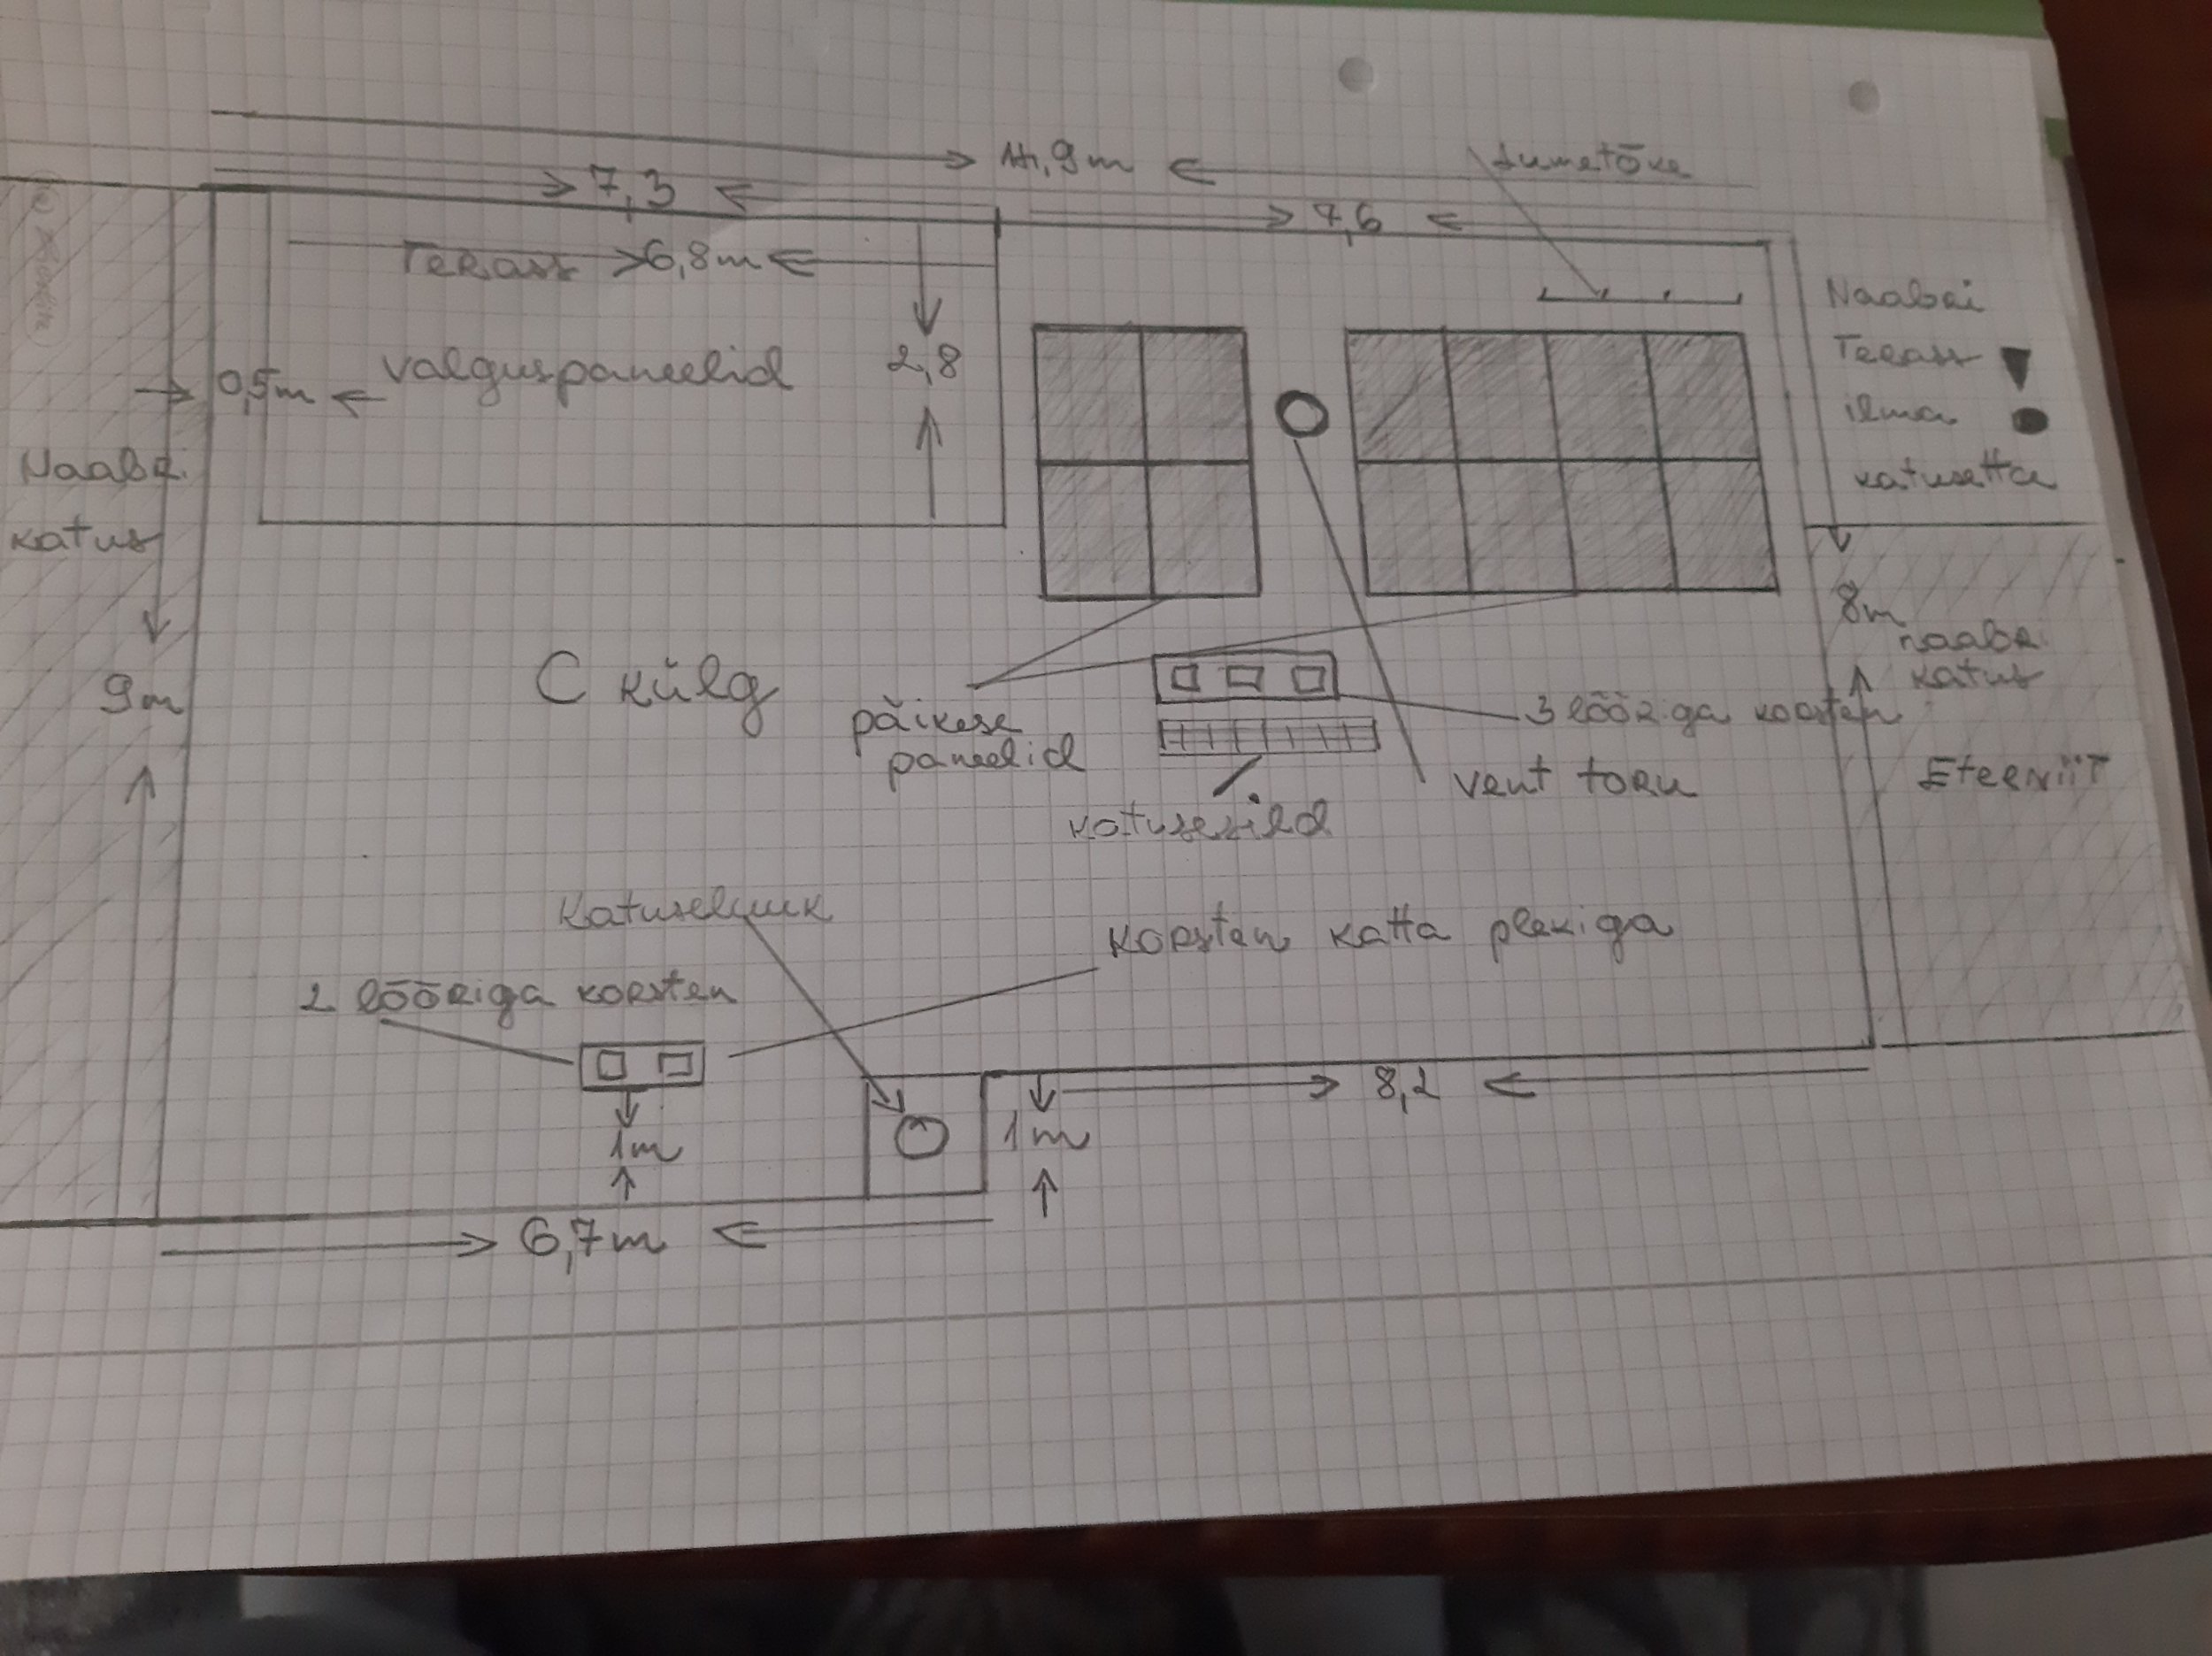 14,9m
lumetõke
7,3
7,6
Terass 6,8m
Naabri
Terass
ilma
katusetta
0,5m
valguspaneelid
2,8
Naabri
katus
9m
8m
naabri
katus
Eterniit
C külg
päikese
paneelid
3 lõõriga korsten
vent toru
katusesild
Katuseluuk
korsten katta plekiga
2 lõõriga korsten
1m
1m
8,2
6,7m